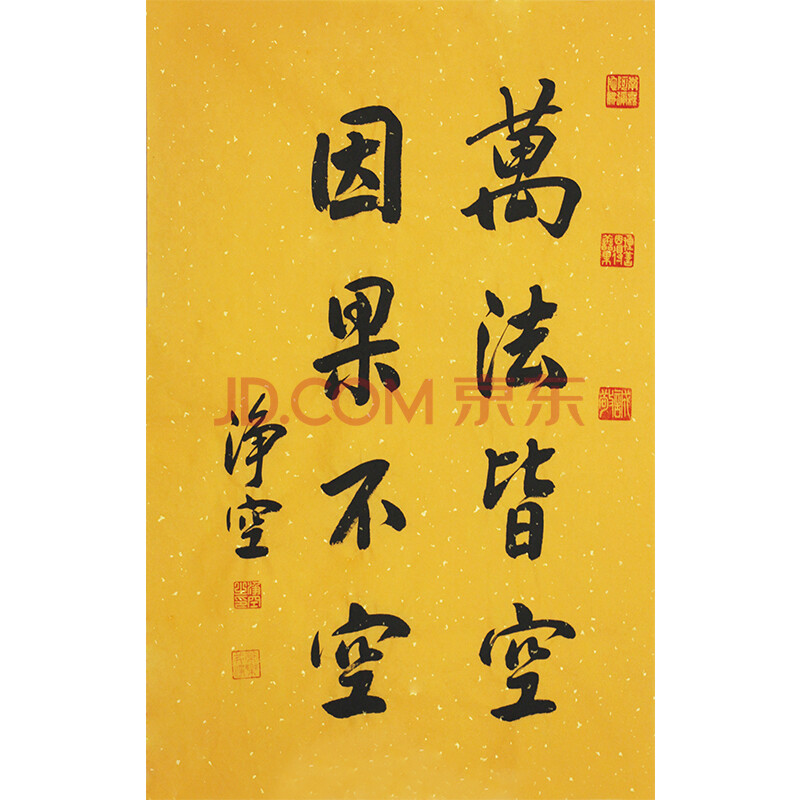 萬法皆空
因果不空
淨空
JD.COM 京东